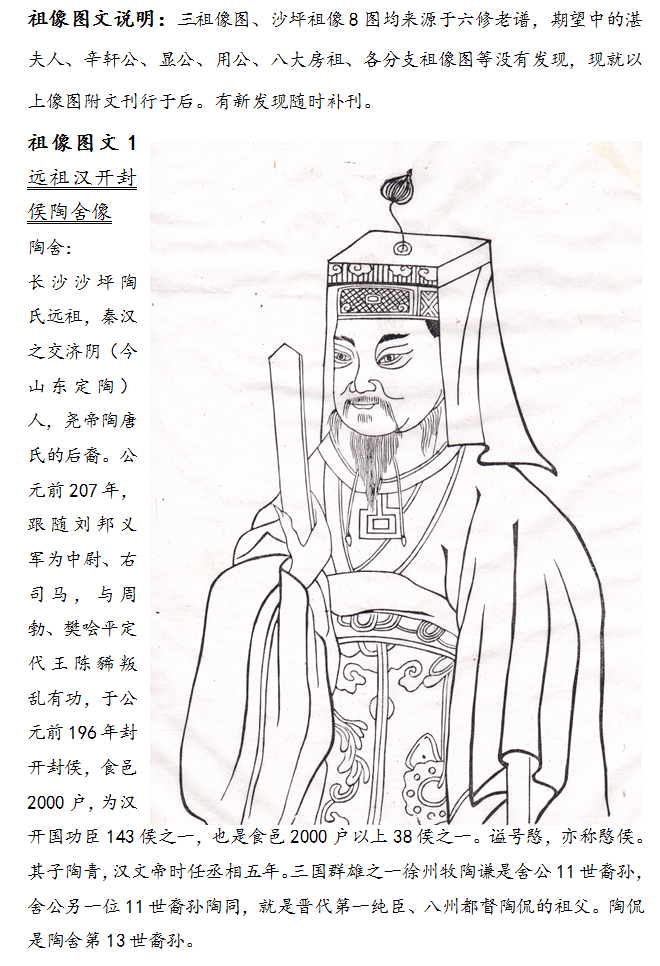 祖像图文说明：三祖像图、沙坪祖像8图均来源于六修老谱，期望中的湛
夫人、辛轩公、显公、用公、八大房祖、各分支祖像图等没有发现，现就以
上像图附文刊行于后。有新发现随时补刊。
祖像图文1
远祖汉开封
侯陶舍像
陶舍：
长沙沙坪陶
氏远祖，秦汉
之交济阴（今
山东定陶）
人，尧帝陶唐
氏的后裔。公
元前207年，
跟随刘邦义
军为中尉、右
司马，与周
勃、樊哙平定
代王陈豨叛
乱有功，于公
元前196年封
开封侯，食邑
2000户，为汉
开国功臣143侯之一，也是食邑2000户以上38侯之一。谥号愍，亦称愍侯。
其子陶青，汉文帝时任丞相五年。三国群雄之一徐州牧陶谦是舍公11世裔孙，
舍公另一位11世裔孙陶同，就是晋代第一纯臣、八州都督陶侃的祖父。陶侃
是陶舍第13世裔孙。